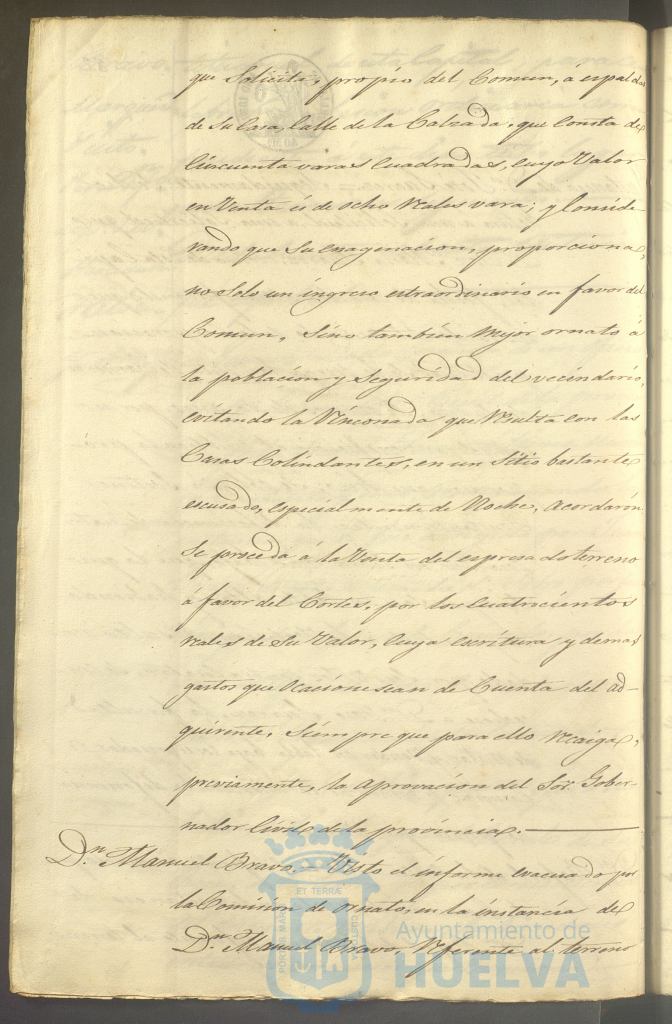 que Solicita, propio del Comun, á espaldas
de su Casa, Calle de la Calzada, que Consta de
Cincuenta varas Cuadradas, cuyo Valor
en Venta és de ocho reales vara; y Conside
rando que su enagenacion, proporciona,
no solo un ingreso estraordinario en favor del
Comun, Sino tambien mejor ornato á
la poblacion y Seguridad del vecindario,
evitando la Rinconada que resulta con las
Casas Colindantes, en un Sitio bastante
escusado, especialmente de Noche, acordarón
Se proceda á la Venta del espresado terreno
á favor del Cortes, por los Cuatrocientos
reales de Su Valor, cuya escritura y demas
gastos que ocacione sean de Cuenta del ad-
quirente, Siempre que para ello recaiga,
previamente, la aprovacion del Sor. Gober-
nador Civil de la provincia.
Dn. Manuel Bravo. Visto el informe evacuado por
la Comision de ornato, en la instancia de
Dn. Manuel Bravo, referente al terreno
PORTUS MARIS
ET TERRÆ
CUSTODIA
Ayuntamiento de
HUELVA